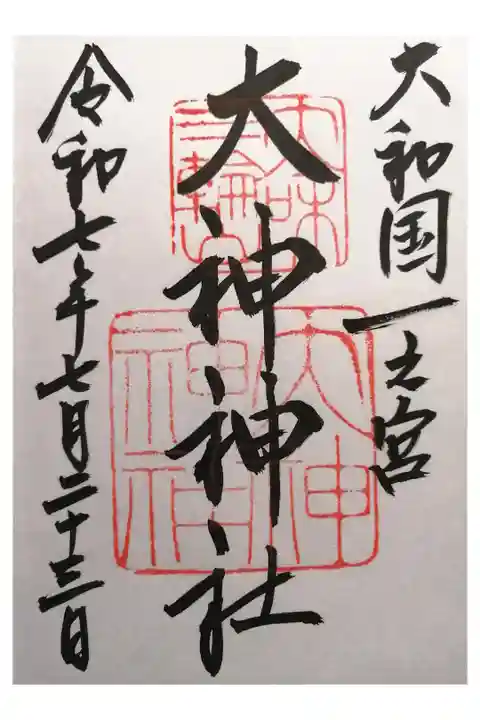 大和国一之宮
大神神社
令和七年七月二十三日
大神
神社